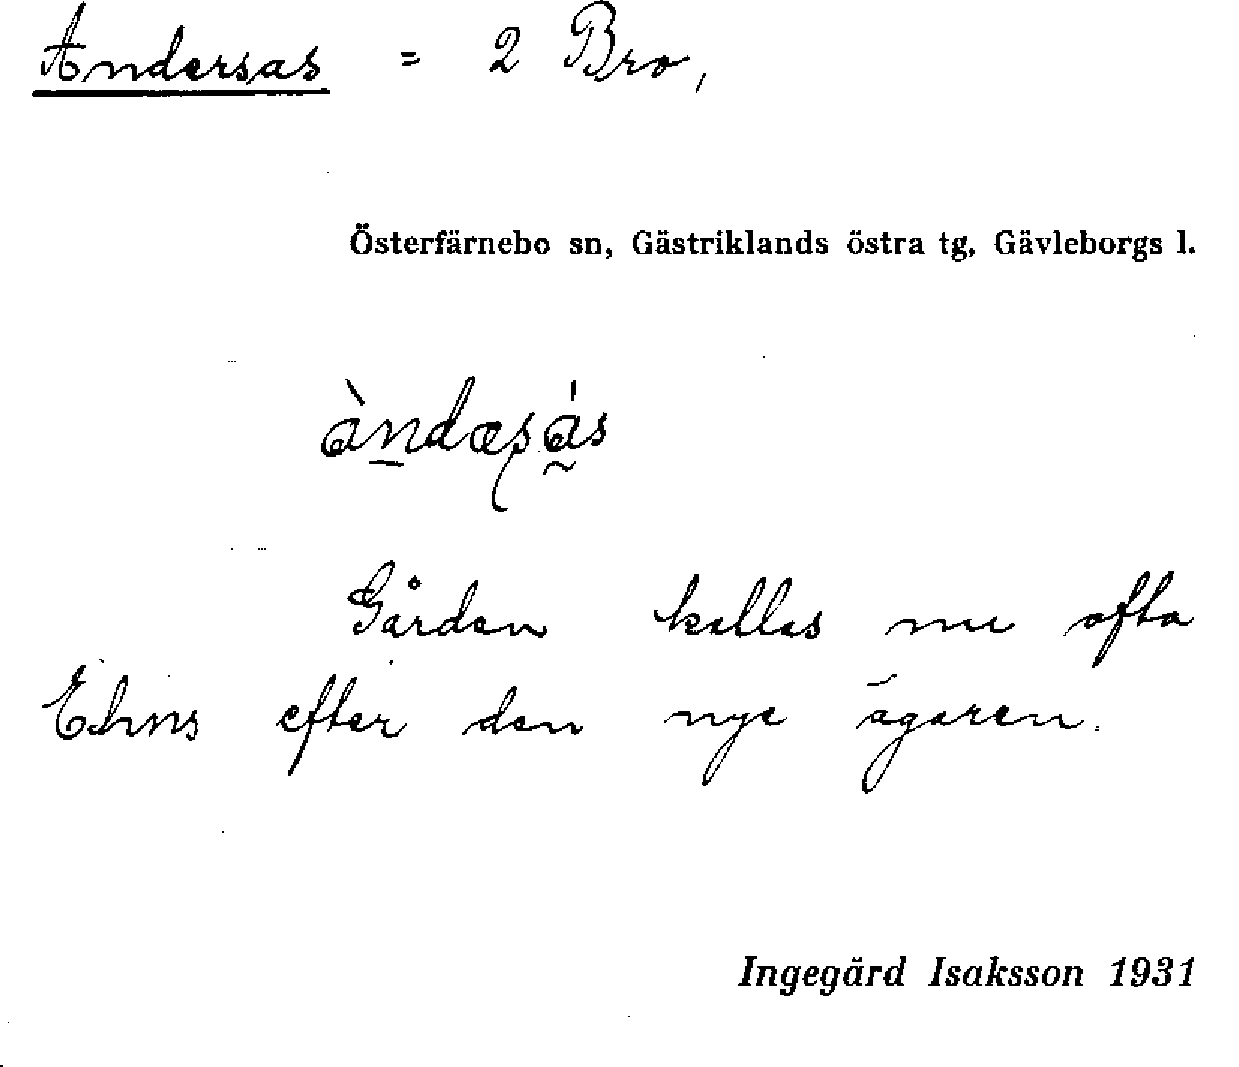 Andersas = 2 Bro,
Österfärnebo sn, Gästriklands östra tg, Gävleborgs l.
àndæṣás
Gården kallas nu ofta
Ehns efter den nye ägaren.
Ingegärd Isaksson 1931